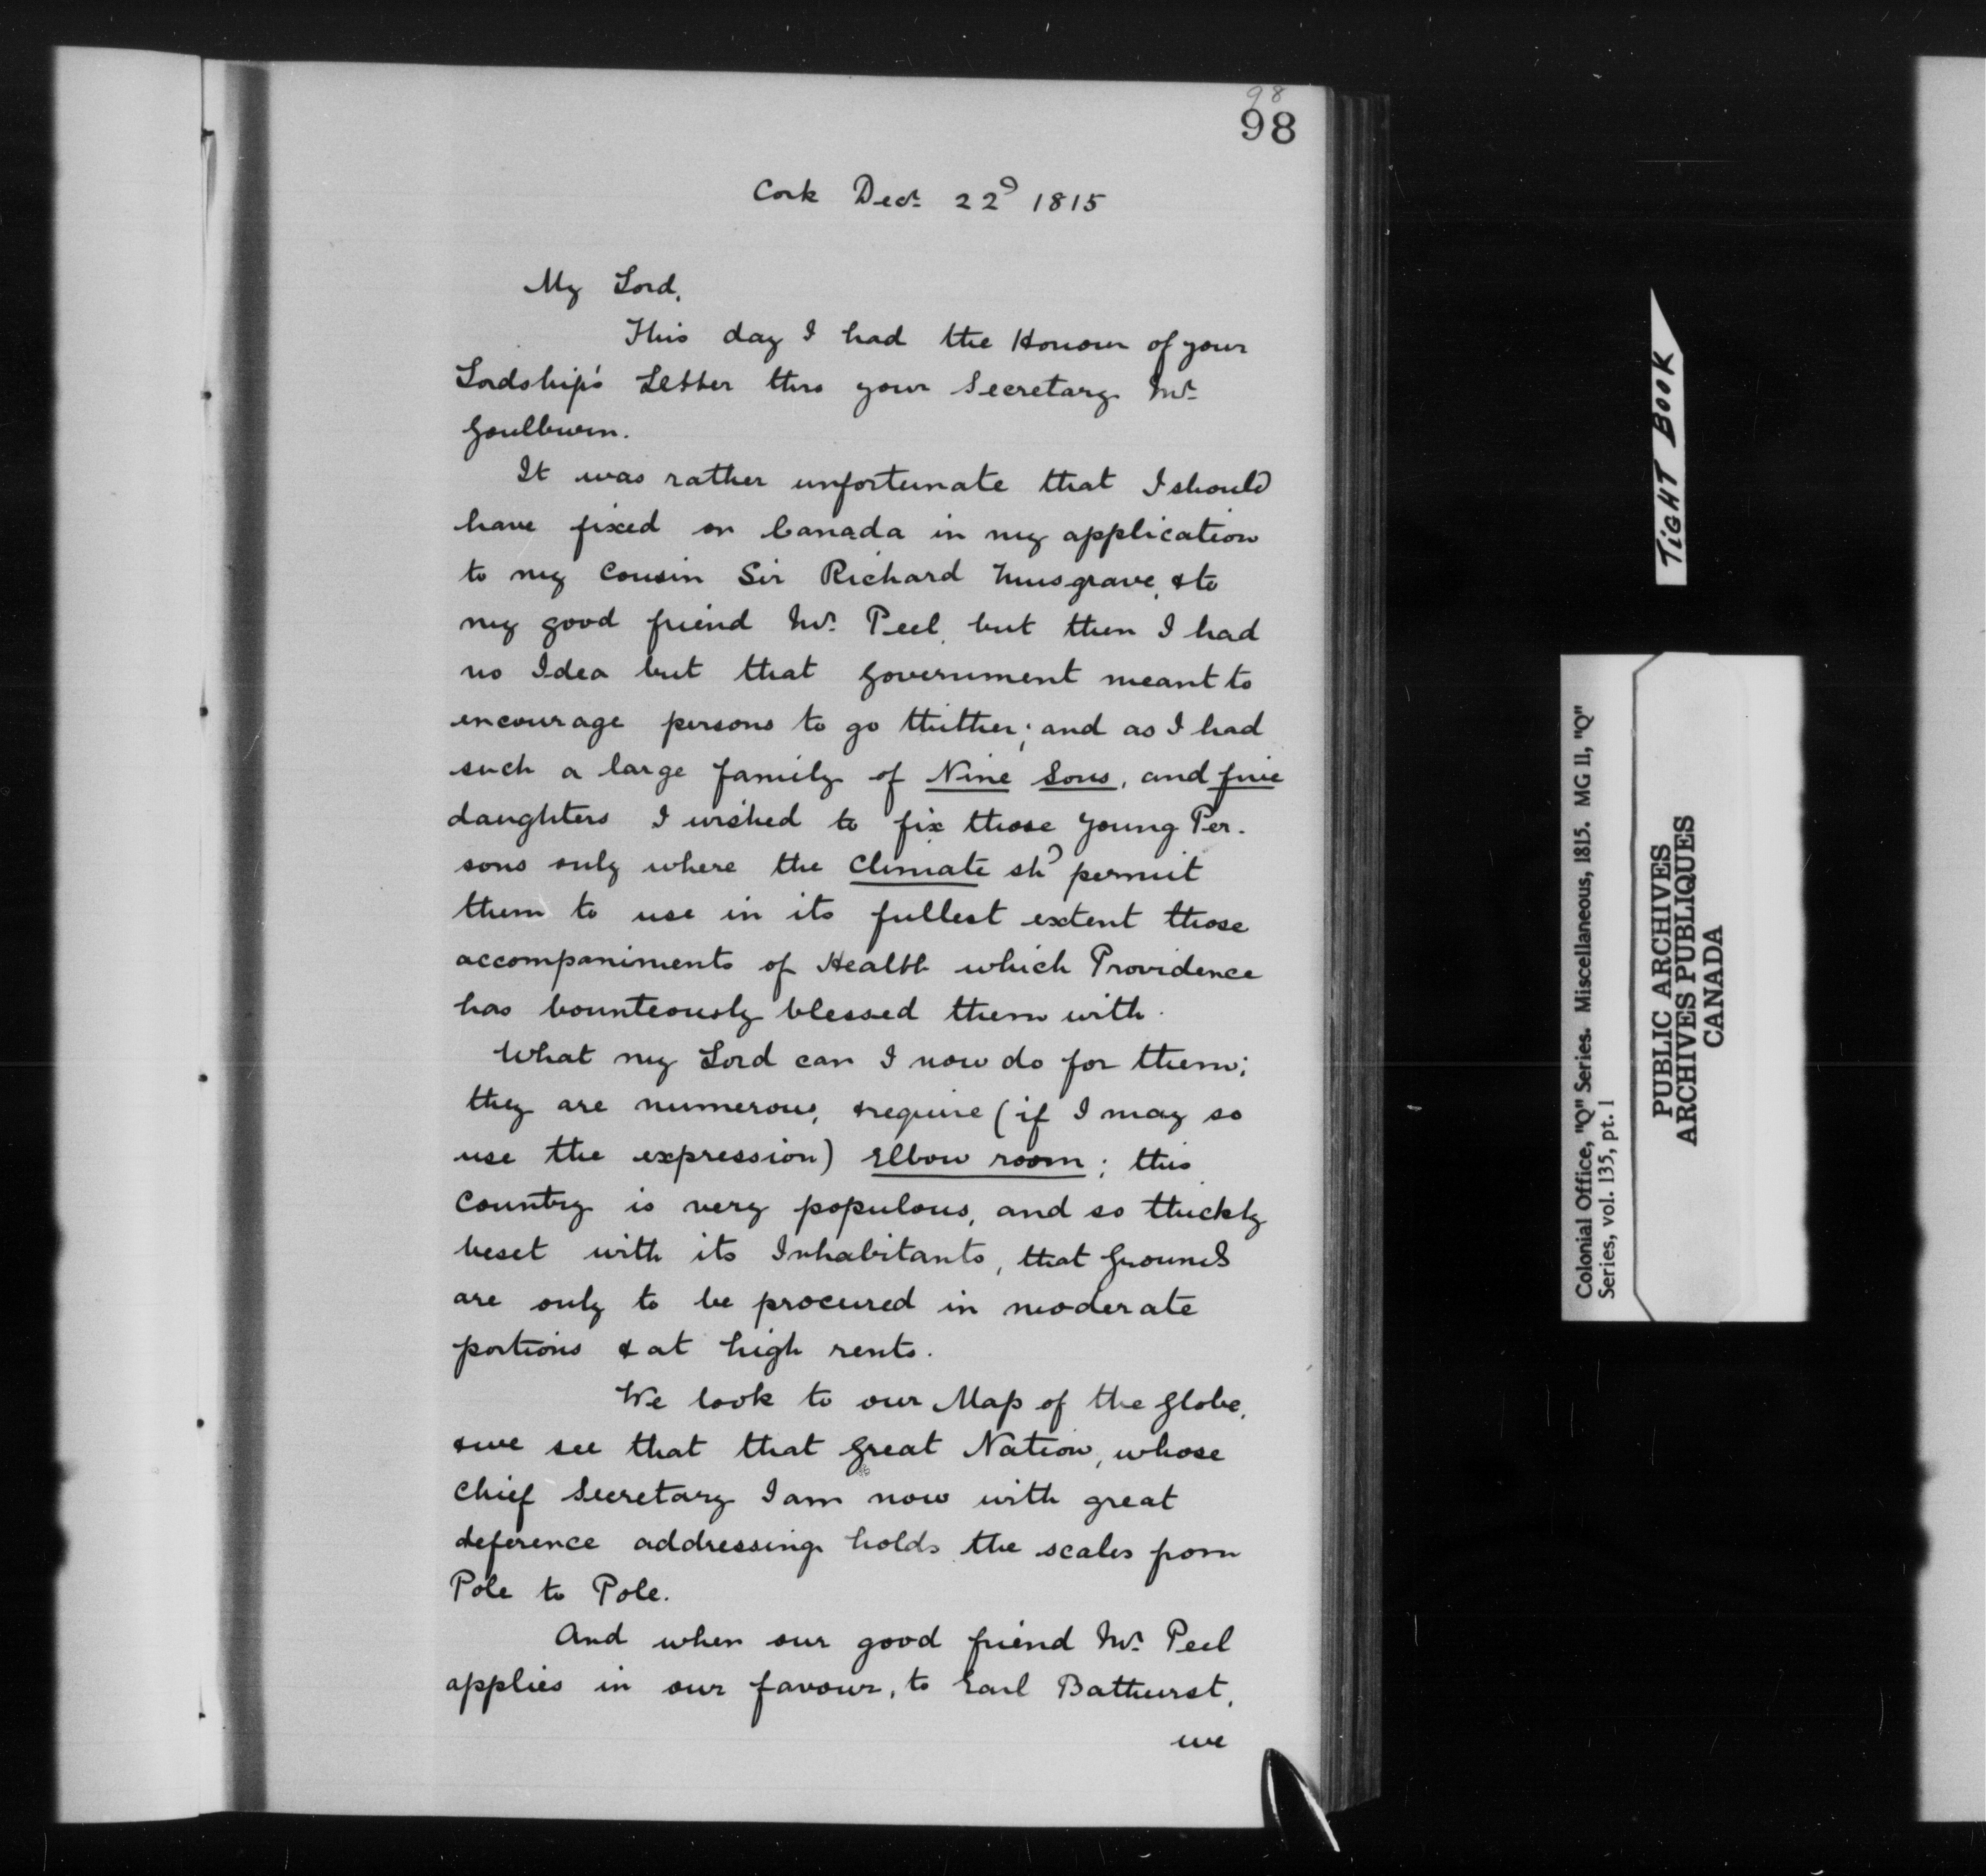 98
98
Cork Decr. 22d 1815
My Lord,
This day I had the Honour of your
Lordship's Letter thro your Secretary Mr.
Goulburn.
It was rather unfortunate that I should
have fixed on Canada in my application
to my Cousin Sir Richard Musgrave, & to
my good friend Mr. Peel, but then I had
no Idea but that Government meant to
encourage persons to go thither; and as I had
such a large family of Nine Sons, and five
daughters I wished to fix those young Per-
sons only where the Climate shd permit
them to use in its fullest extent those
accompaniments of Health which Providence
has bounteously blessed them with.
What my Lord can I now do for them;
they are numerous, & require (if I may so
use the expression) Elbow room; this
Country is very populous, and so thickly
beset with its Inhabitants, that Grounds
are only to be procured in moderate
portions & at high rents.
We look to our Map of the Globe,
& we see that that Great Nation, whose
Chief Secretary I am now with great
deference addressing holds the scales from
Pole to Pole.
And when our good friend Mr. Peel
applies in our favour, to Earl Bathurst,
we
TIGHT BOOK
Colonial Office, "Q" Series. Miscellaneous, 1815. MG 11, "Q"
Series, vol. 135, pt. 1
PUBLIC ARCHIVES
ARCHIVES PUBLIQUES
CANADA